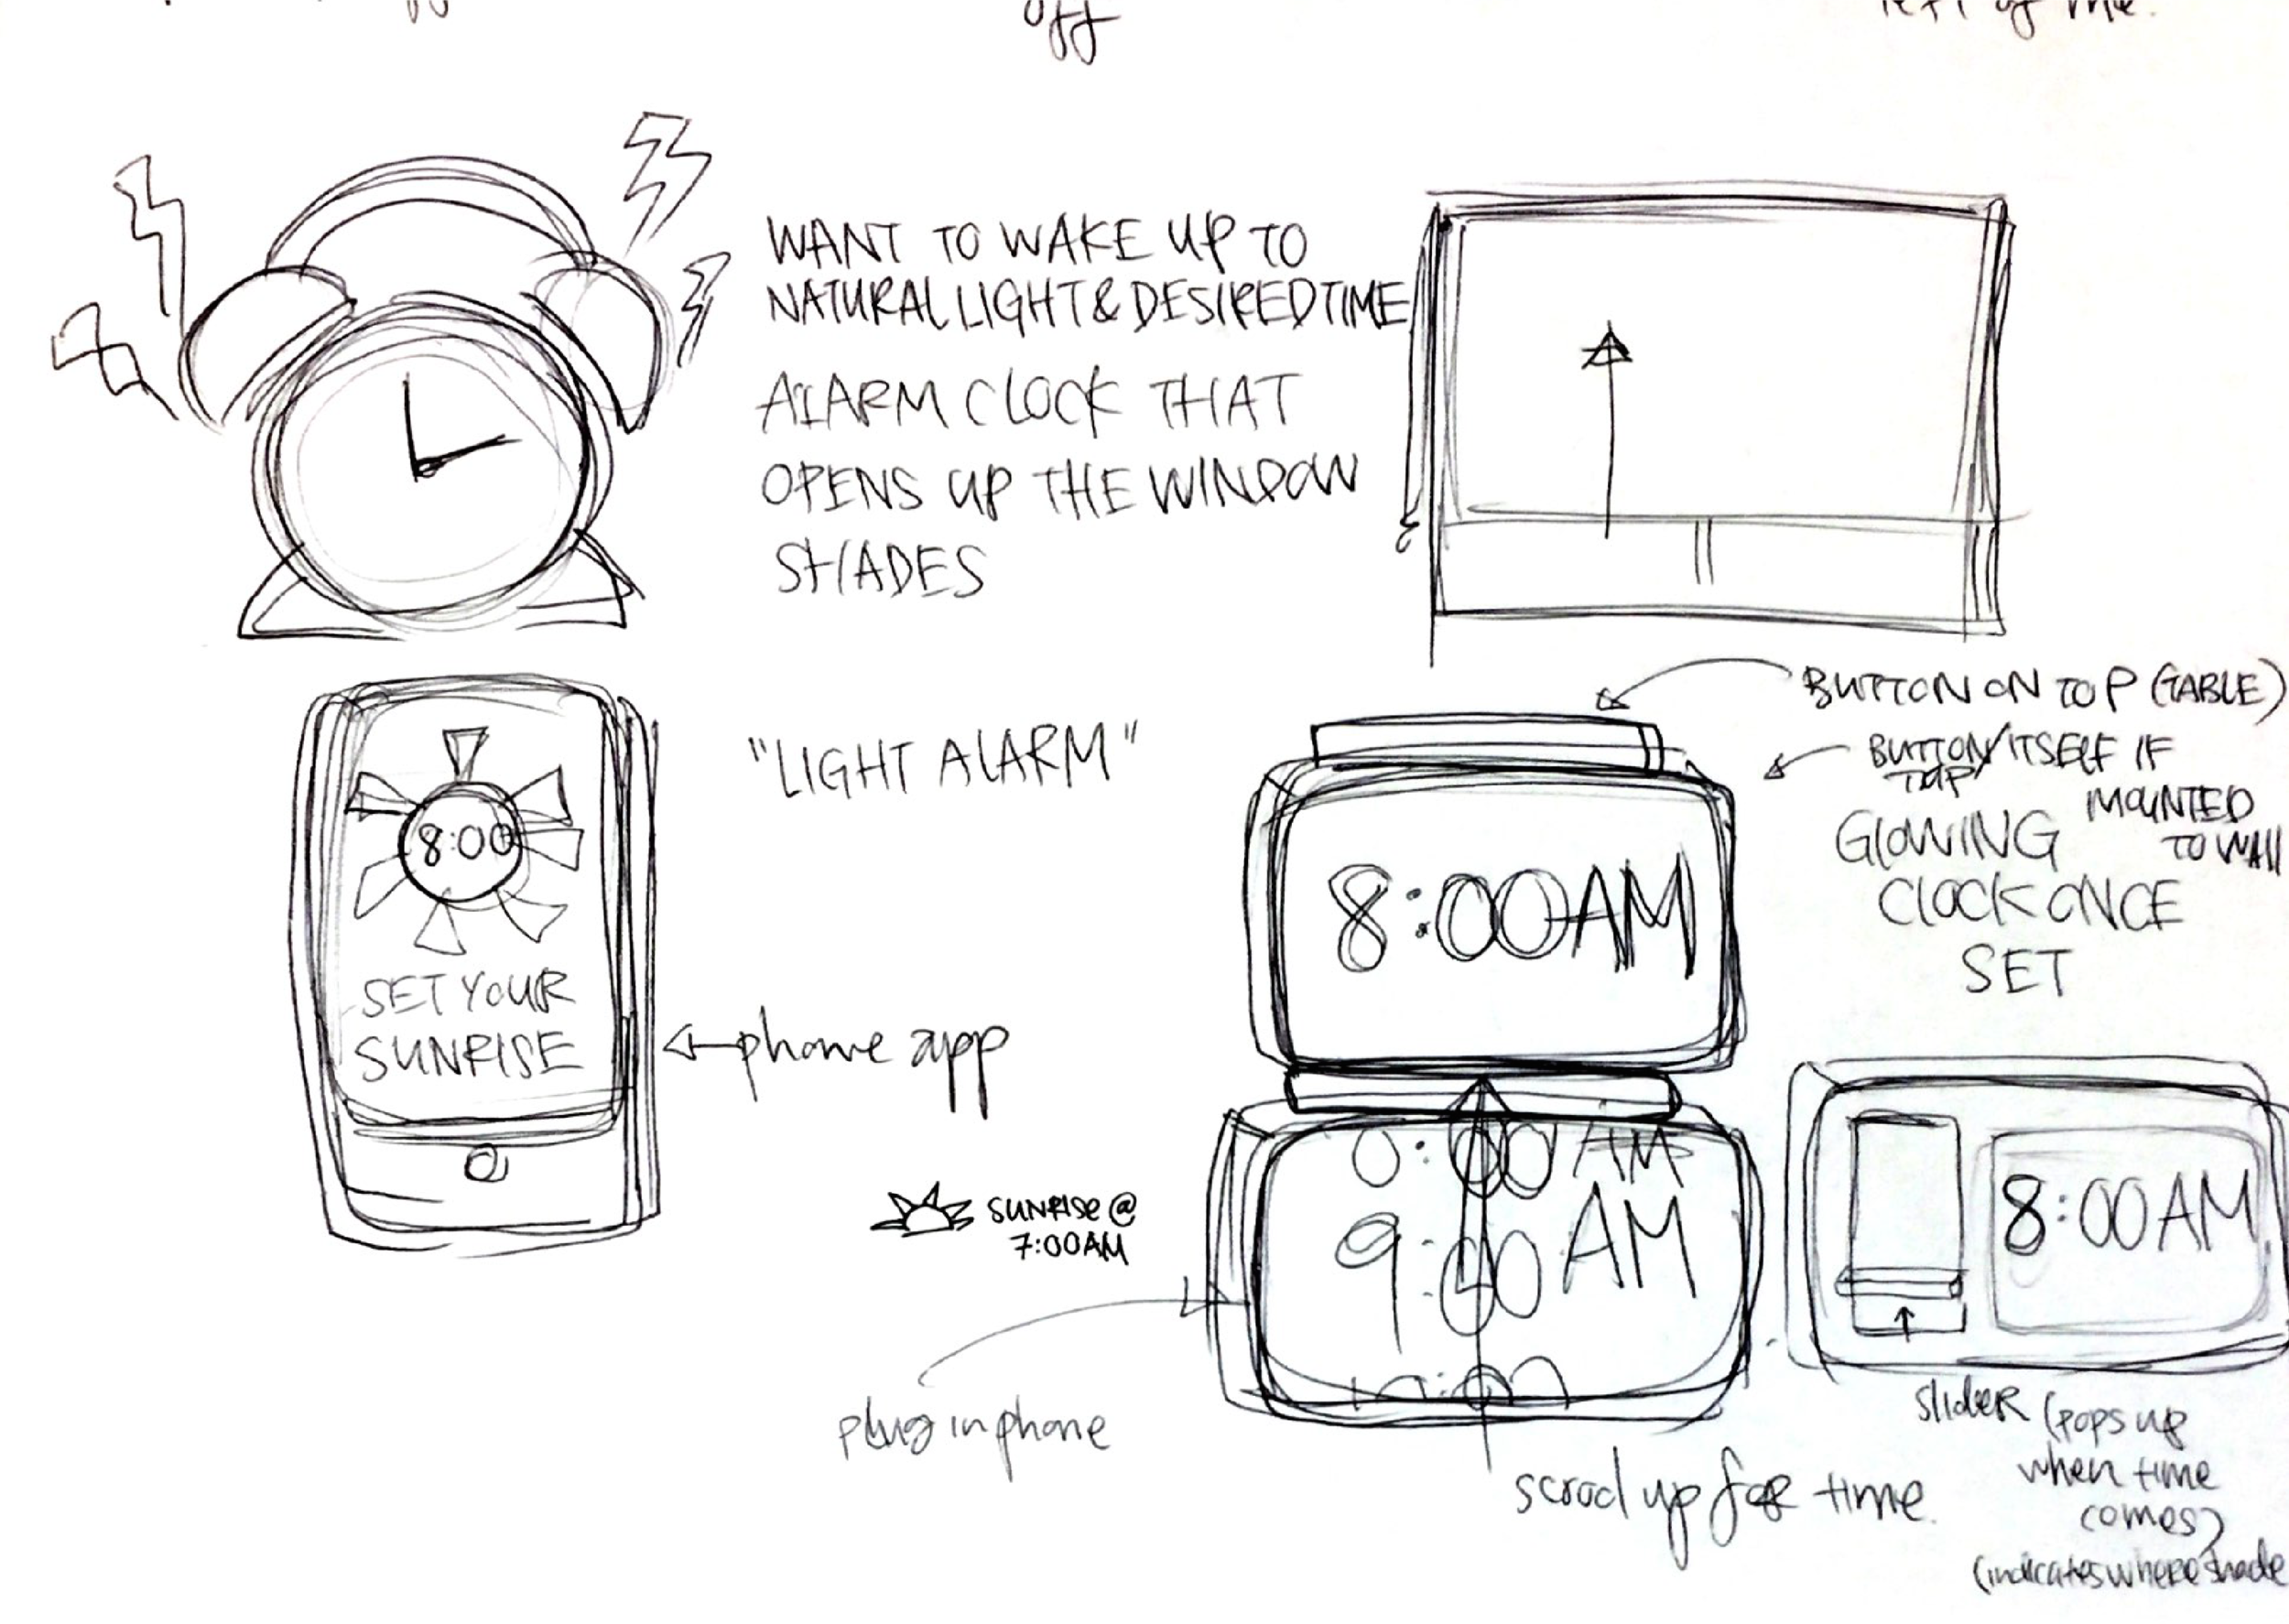 off
left of me.
WANT TO WAKE UP TO
NATURAL LIGHT & DESIRED TIME
ALARM CLOCK THAT
OPENS UP THE WINDOW
SHADES
8:00
SET YOUR
SUNRISE
"LIGHT ALARM"
phone app
BUTTON ON TOP (TABLE)
BUTTON/ITSELF IF
TAP
MOUNTED
TO WALL
GLOWING
CLOCK ONCE
SET
8:00AM
SUNRISE @
7:00AM
plug in phone
:00 AM
9:00 AM
scrool up for time.
8:00AM
SlideR (pops up
when time
comes)
(indicates where shade